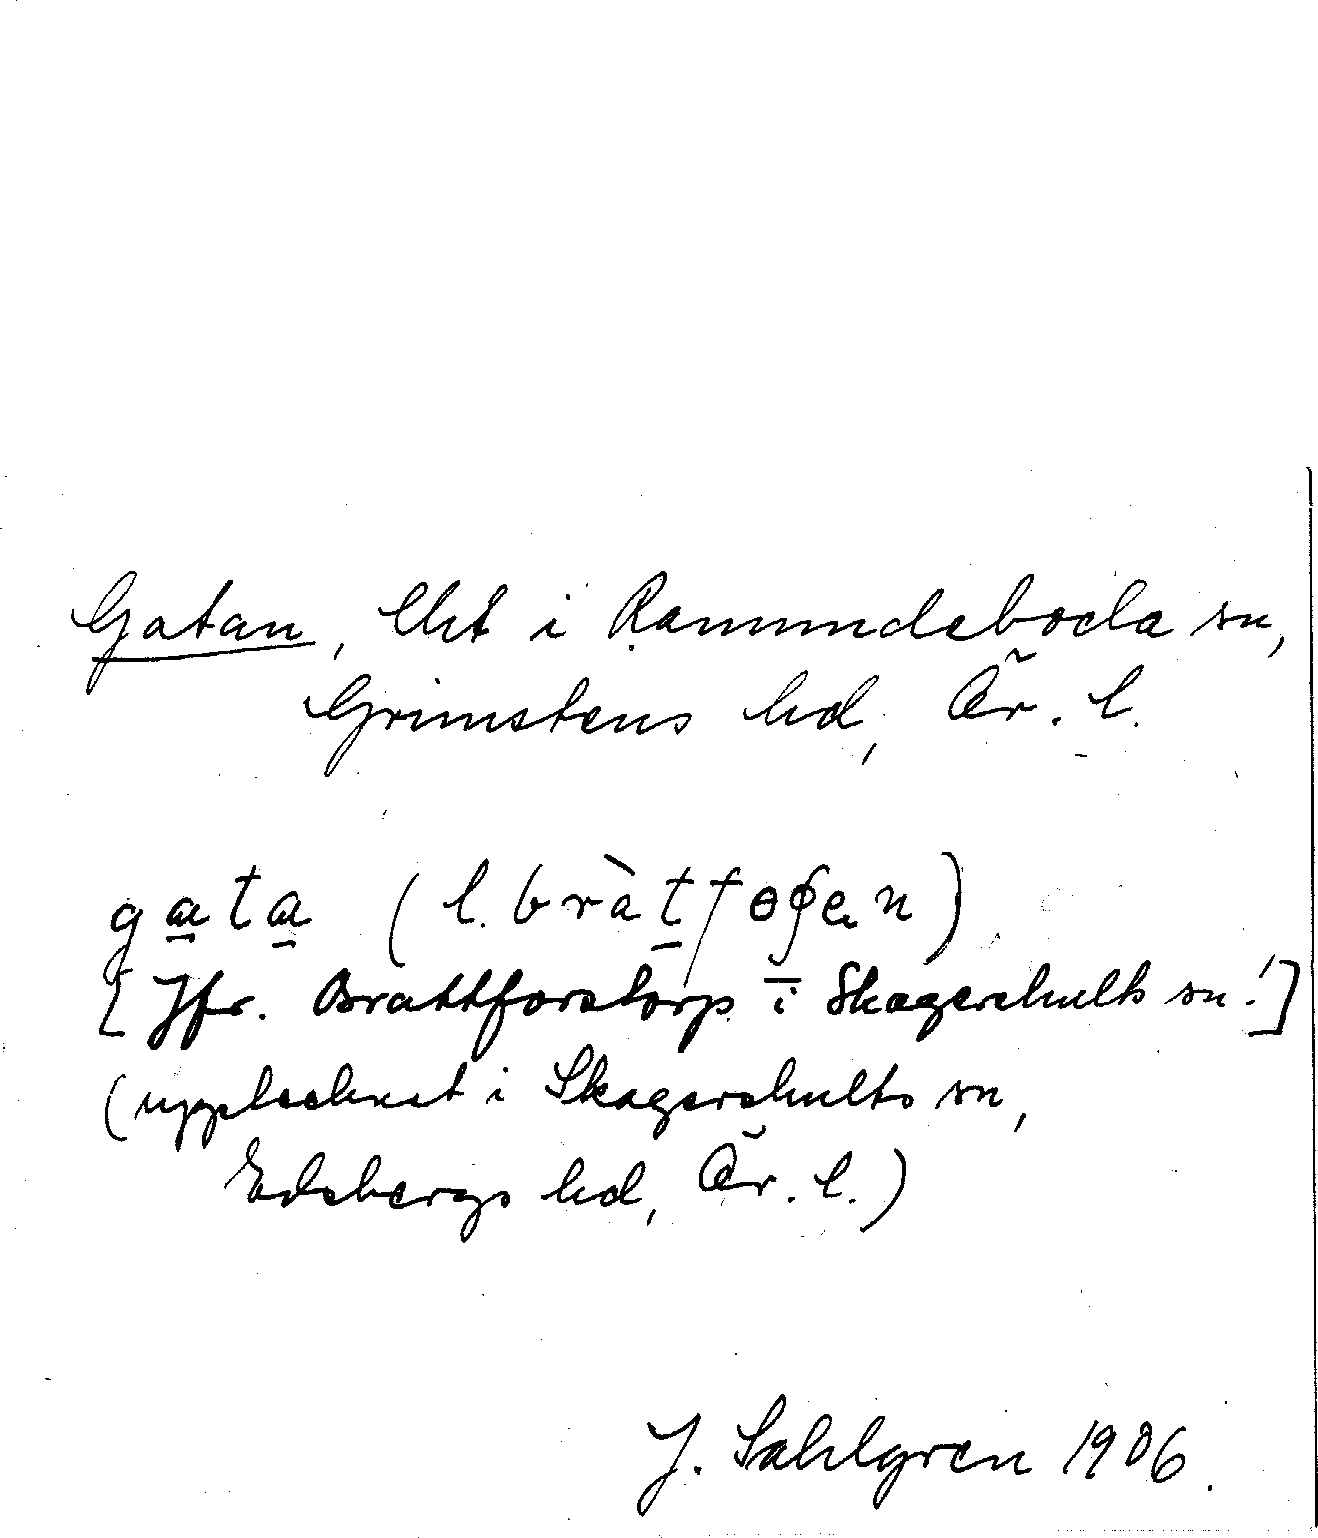 Gatan, lht i Ramundeboda sn,
Grimstens hd, Ör. l.
gata (l. bràtfoʂen)
[Jfr. Brattforstorp i Skagershults sn!]
(upptecknat i Skagershults sn,
Edsbergs hd, Ör. l.)
J. Sahlgren 1906.